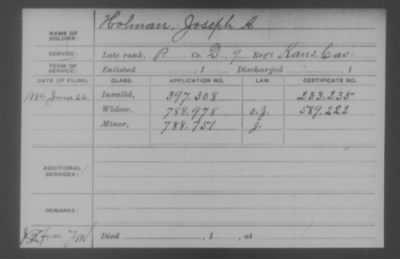 NAME OF SOLDIER: Holman, Joseph A.
SERVICE: Late rank, P Co. D, 9 Reg't Kans. Cav.
TERM OF SERVICE: Enlisted , 1 Discharged , 1
DATE OF FILING. CLASS. APPLICATION NO. LAW. CERTIFICATE NO.
1880 June 26 Invalid, 397,308 233,235
Widow, 788,978 o.J. 589,222
Minor, 788,751 J.
ADDITIONAL SERVICES:
REMARKS:
Died , 1 , at